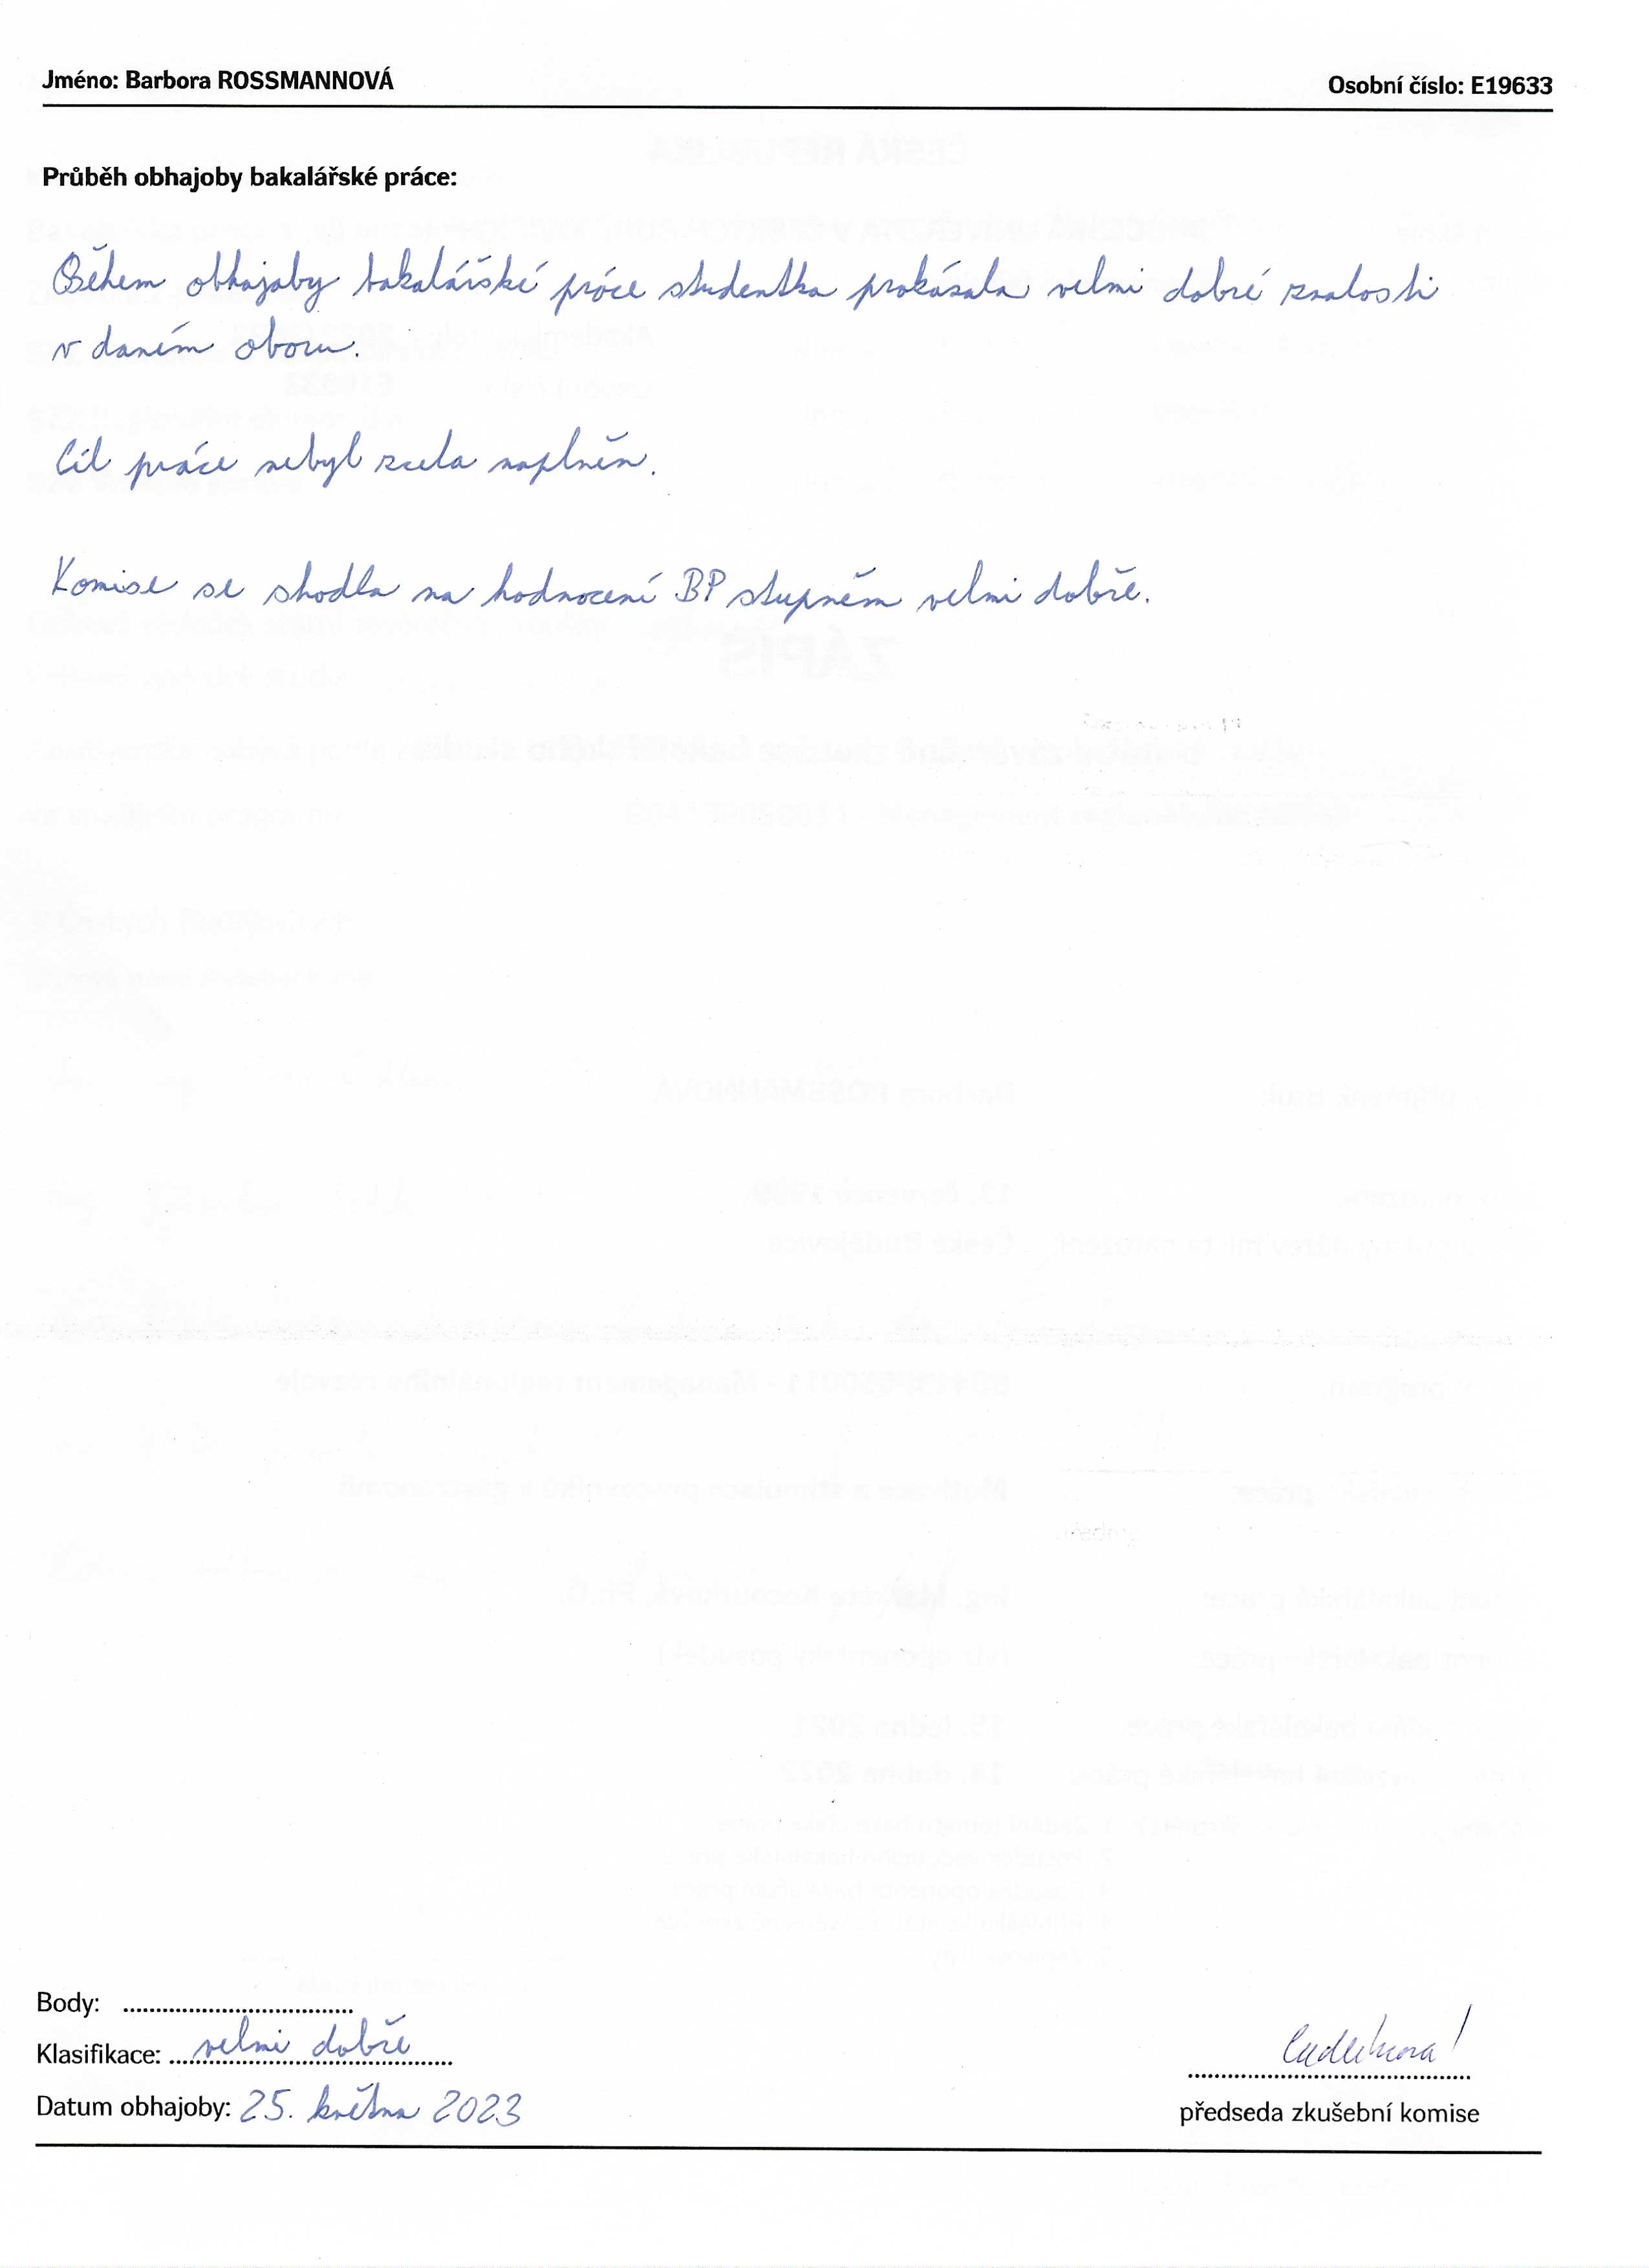 Jméno: Barbora ROSSMANNOVÁ Osobní číslo: E19633
Průběh obhajoby bakalářské práce:
Během obhajoby bakalářské práce studentka prokázala velmi dobré znalosti
v daném oboru.
Cíl práce nebyl zcela naplněn.
Komise se shodla na hodnocení BP stupněm velmi dobře.
Body: ....................................
Klasifikace: velmi dobře
Datum obhajoby: 25. května 2023
předseda zkušební komise